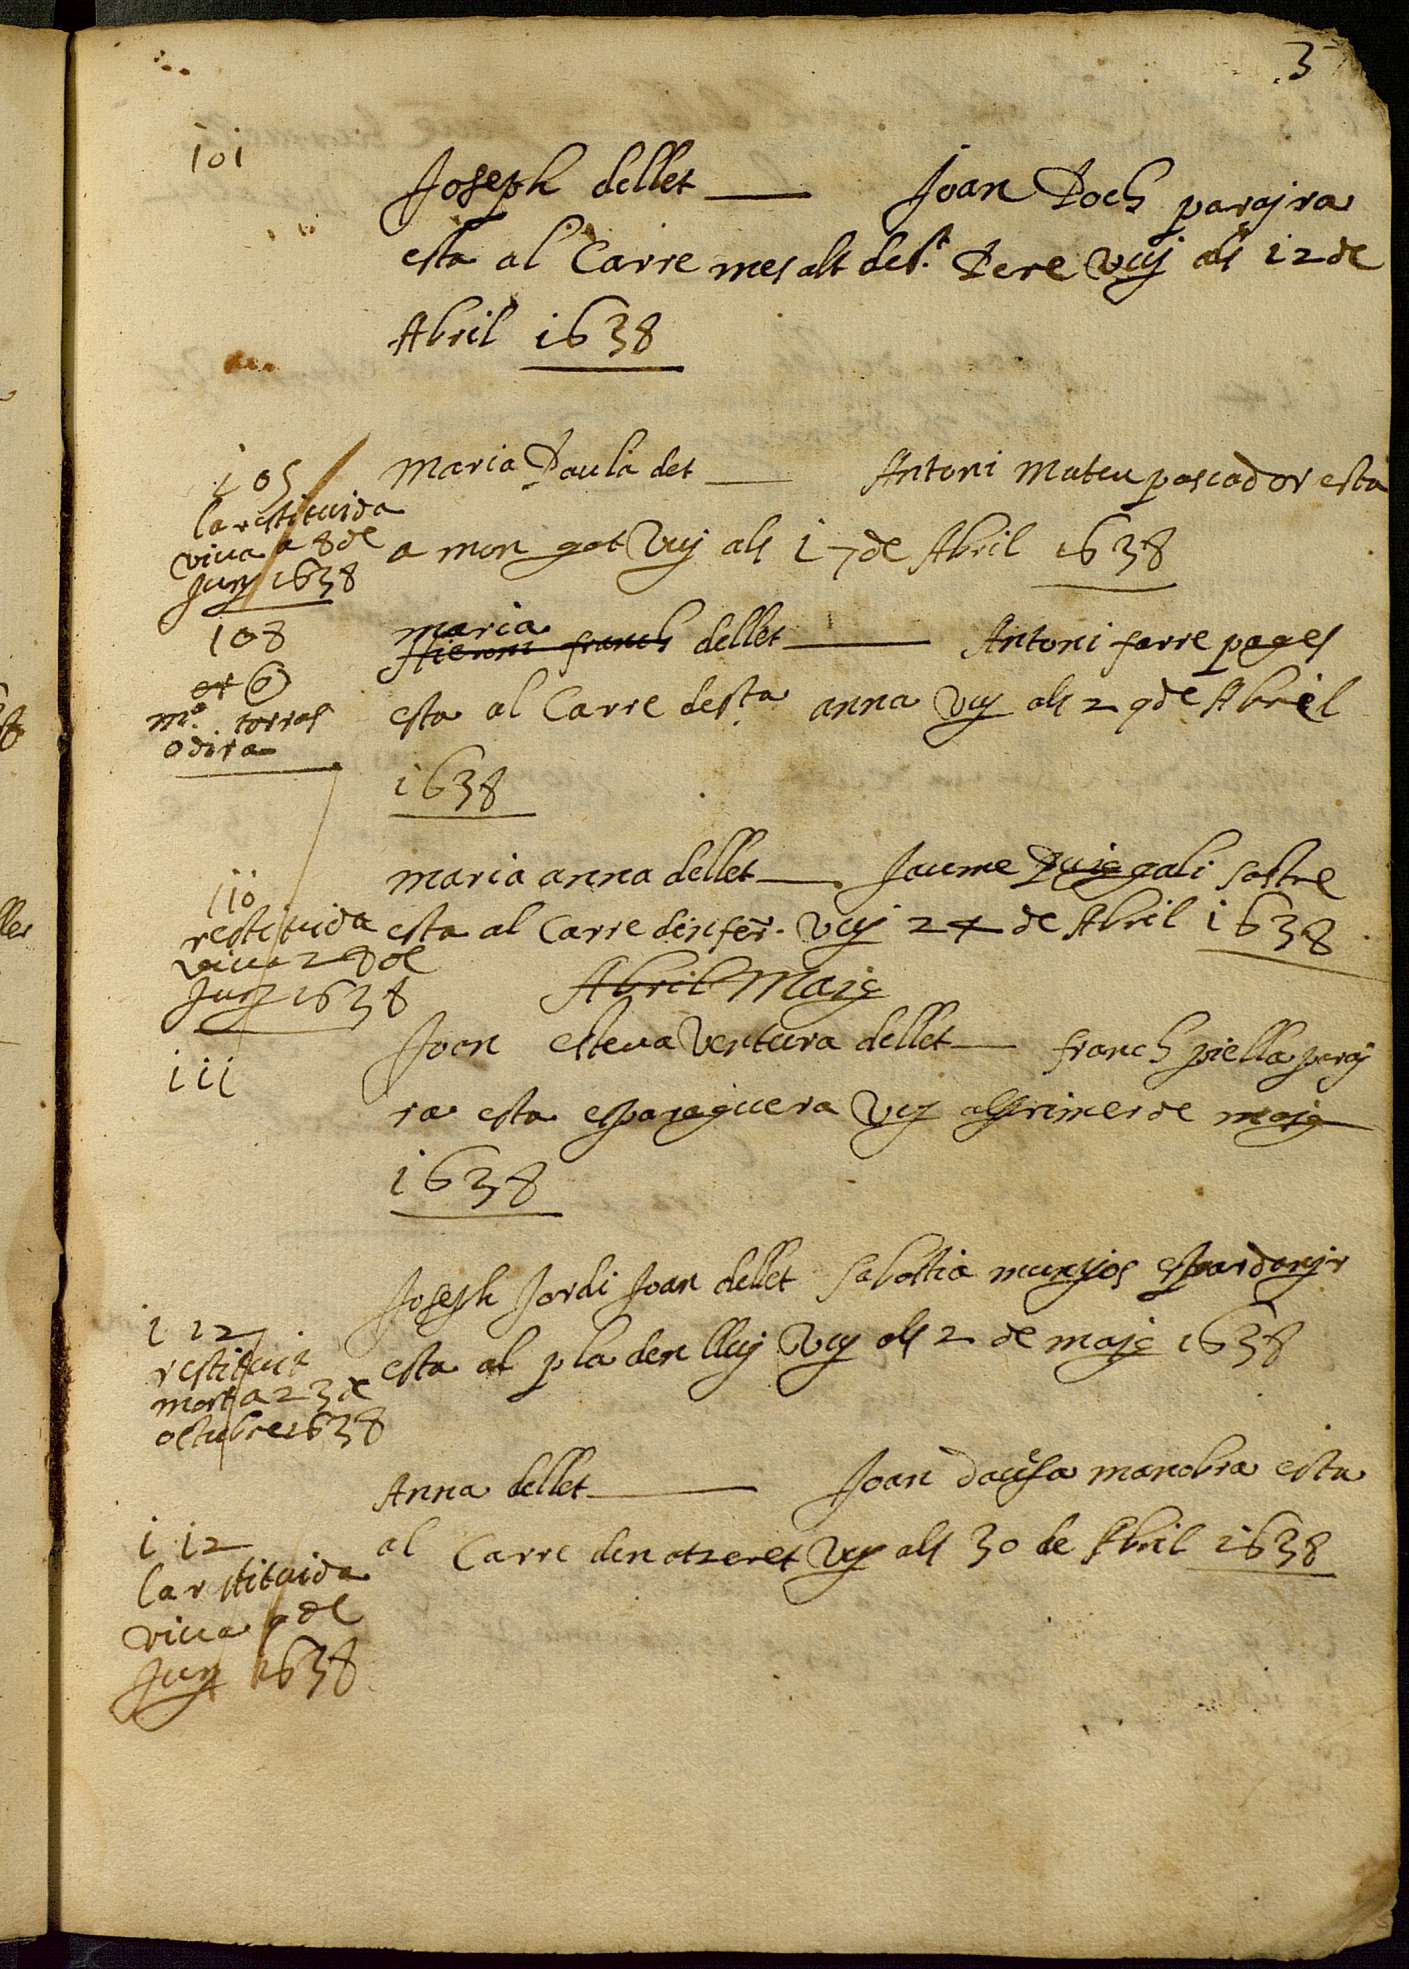 3
101
Joseph dellet Joan Roch parajra
esta al Carre mes alt de st. Pere vuy als 12 de
Abril 1638
105
la restituida
viua a 8 de
Juny 1638
maria Paula det Antoni mateu pascador esta
a mon gat vuy als 17 de Abril 1638
108
ma. torras
odira
maria
Hieroni franch dellet Antoni farre pages
esta al Carre de sta anna vuy als 29 de Abril
1638
110
restituida
viua 28 de
Juny 1638
maria anna dellet Jaume Puiggali sastre
esta al Carre dinfern. vuy 24 de Abril 1638
Abril Maig
111
Joan esteua Ventura dellet franch piella paraj
ra esta esparaguera vuy als primer de maig
1638
112
restituit
mort a 23 de
octubre 1638
Joseph Jordi Joan dellet Sabastia munyos espardanyr
esta al pla den lluy vuy als 2 de maig 1638
112
la restituida
viua 9 de
Juny 1638
Anna dellet Joan dausa manobra esta
al Carre den atzeret vuy als 30 de Abril 1638